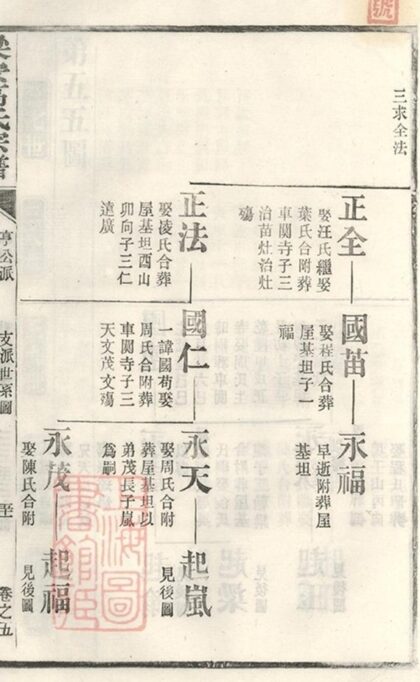 三求全法
正全
娶汪氏繼娶
葉氏合附葬
車闗寺子三
治苗灶治灶
殤
國苗
娶程氏合葬
屋基坦子一
福
永福
早逝附葬屋
基坦
正法
娶凌氏合葬
屋基坦酉山
卯向子三仁
達廣
國仁
一諱國荀娶
周氏合附葬
車闗寺子三
天文茂文殤
永天
娶周氏合附
葬屋基坦以
弟茂長子嵐
爲嗣
起嵐
見後圖
永茂
娶陳氏合附
起福
見後圖
氏宗譜
亨公派
支派世系圖
卷之五